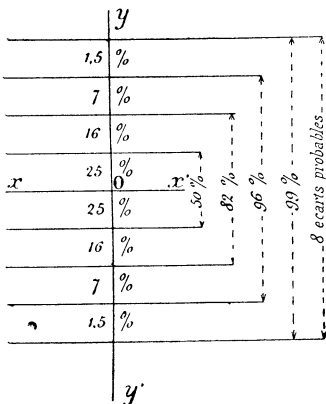 y
1,5 %
7 %
16 %
25 %
x 0 x'
25 %
16 %
7 %
1,5 %
y'
50 %
82 %
96 %
99 %
8 ecarts probables